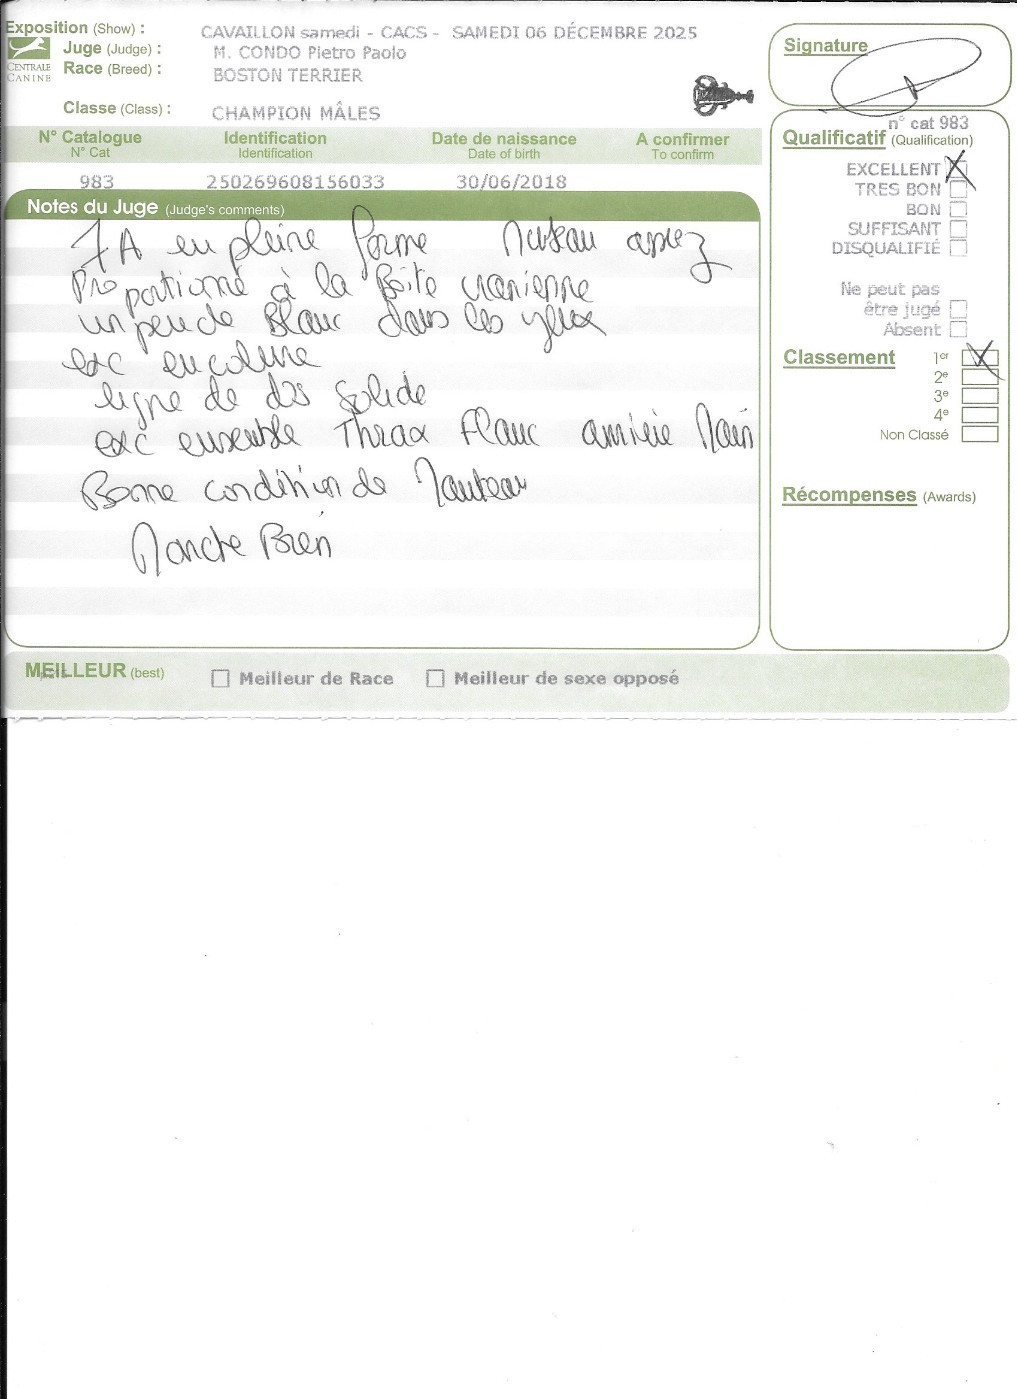 Exposition (Show) : CAVAILLON samedi - CACS - SAMEDI 06 DÉCEMBRE 2025
Juge (Judge) : M. CONDO Pietro Paolo
Race (Breed) : BOSTON TERRIER
CENTRALE
CANINE
Classe (Class) : CHAMPION MÂLES
N° Catalogue Identification Date de naissance A confirmer
N° Cat Identification Date of birth To confirm
983 250269608156033 30/06/2018
Notes du Juge (Judge's comments)
7A en pleine forme Museau assez
Proportionné à la Boite cranienne
un peu de Blanc dans les yeux
exc encolure
ligne de dos solide
exc ensemble Thorax Flanc arrière Main
Bonne condition de Manteau
Marche Bien
MEILLEUR (best) Meilleur de Race Meilleur de sexe opposé
Signature
n° cat 983
Qualificatif (Qualification)
EXCELLENT
TRES BON
BON
SUFFISANT
DISQUALIFIÉ
Ne peut pas
être jugé
Absent
Classement 1er
2e
3e
4e
Non Classé
Récompenses (Awards)